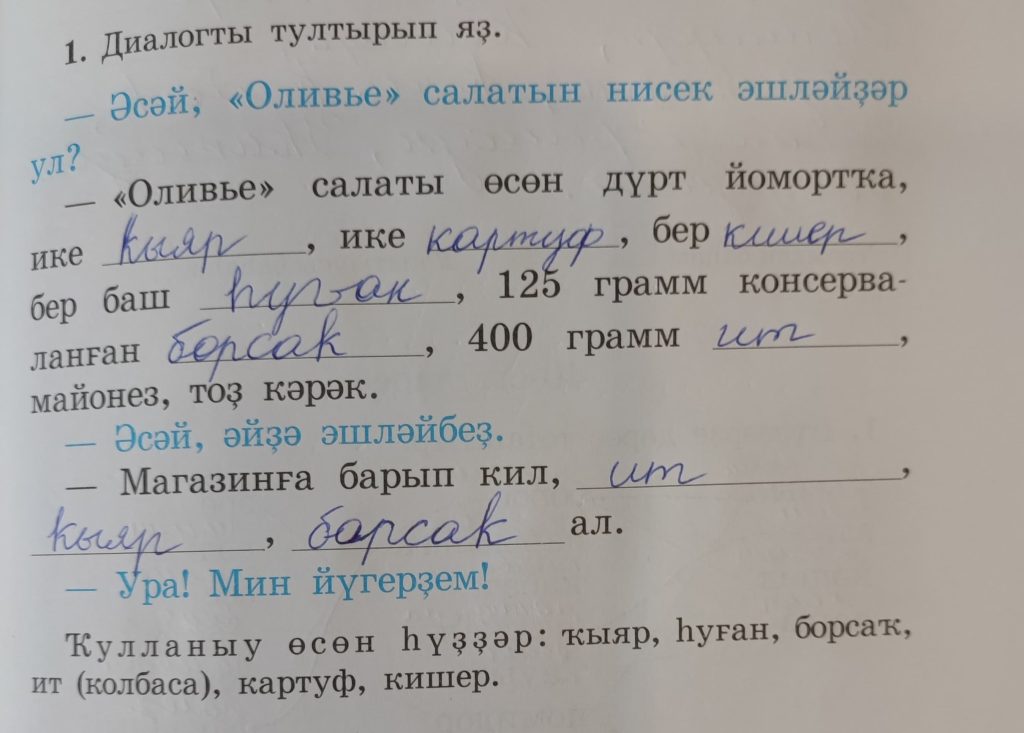 1. Диалогты тултырып яҙ.
— Әсәй, «Оливье» салатын нисек эшләйҙәр
ул?
— «Оливье» салаты өсөн дүрт йомортҡа,
ике ҡыяр, ике картуф, бер кишер,
бер баш һуған, 125 грамм консерва-
ланған борсаҡ, 400 грамм ит,
майонез, тоҙ кәрәк.
— Әсәй, әйҙә эшләйбеҙ.
— Магазинға барып кил, ит,
ҡыяр, борсаҡ ал.
— Ура! Мин йүгерҙем!
Ҡулланыу өсөн һүҙҙәр: ҡыяр, һуған, борсаҡ,
ит (колбаса), картуф, кишер.